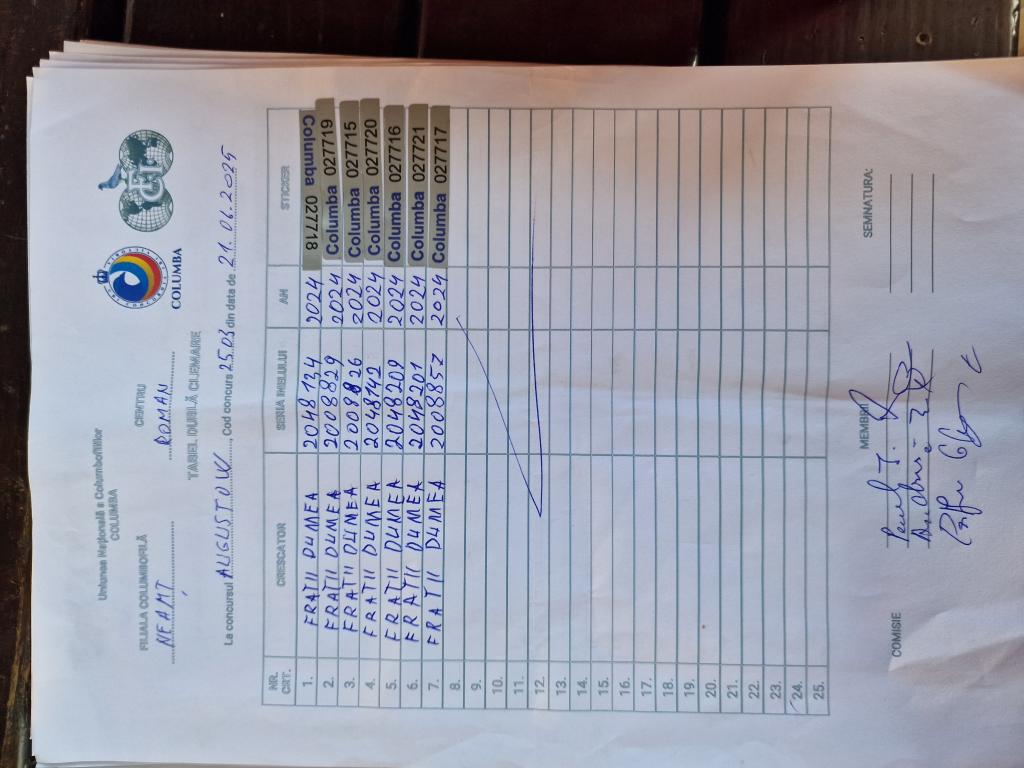 Uniunea Națională a Columbofililor
COLUMBA
COLUMBA
FILIALA COLUMBOFILĂ CENTRU
NEAMȚ ROMAN
TABEL DUBLĂ CLEMARE
La concursul AUGUSTOW, Cod concurs 25.03 din data de 21.06.2025
NR. CRT. CRESCATOR SERIA INELULUI AN STICKER
1. FRATII DUMEA 2048124 2024 Columba 027718
2. FRATII DUMEA 2008829 2024 Columba 027719
3. FRATII DUMEA 2008826 2024 Columba 027715
4. FRATII DUMEA 2048142 2024 Columba 027720
5. FRATII DUMEA 2048209 2024 Columba 027716
6. FRATII DUMEA 2048201 2024 Columba 027721
7. FRATII DUMEA 2008852 2024 Columba 027717
8.
9.
10.
11.
12.
13.
14.
15.
16.
17.
18.
19.
20.
21.
22.
23.
24.
25.
COMISIE MEMBRI SEMNATURA: